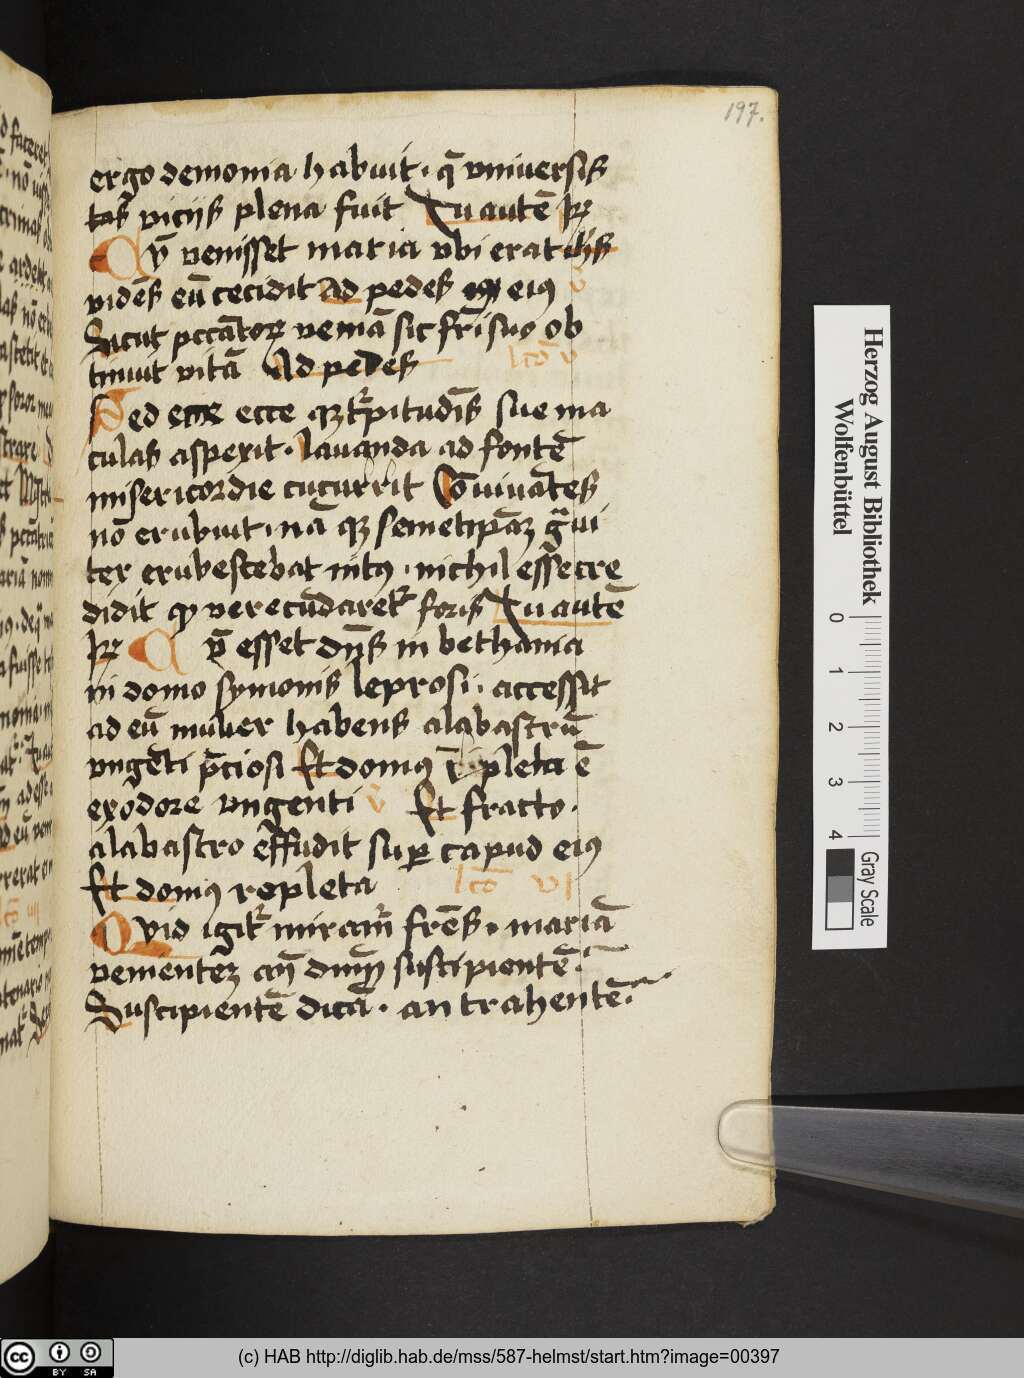 197.
ergo demonia habuit · q̄ vniuersis
tas viciis plena fuit Tu autē
Qn̄ venisset maria vbi erat ihs
vidēs eū cecidit ad pedes eiꝯ v̄
Sicut pccāto℟ veniā sic frīs suo ob
tinuit vitā Ad pedes lcō v
Sed ecce qꝫ turpitudīs sue ma
culas aspexit · lauanda ad fontē
misericordie cucurrit Cōuiuātes
nō erubuit · nā qꝫ semetipāꝫ gͣui
ter erubescebat intꝯ · nichil esse cre
didit qꝫ verecūdaretᷣ foris Tu autē
Qn̄ esset dn̄s in bethania
in domo symonis leprosi · accessit
ad eū mulier habens alabastrū
vngēti p̄ciosi Et domꝯ repleta ē
ex odore vngenti v̄ Et fracto ·
alabastro effudit suꝑ capud eiꝯ
Et domꝯ repleta lcō vi
Qvid igitᷣ miramᷣ frēs · mariā
venientēꝫ an̄ dn̄m suscipientē ·
Suscipientē dicā · an trahentē ·
Herzog August Bibliothek
Wolfenbüttel
0 1 2 3 4
Gray Scale
cc BY SA
(c) HAB http://diglib.hab.de/mss/587-helmst/start.htm?image=00397